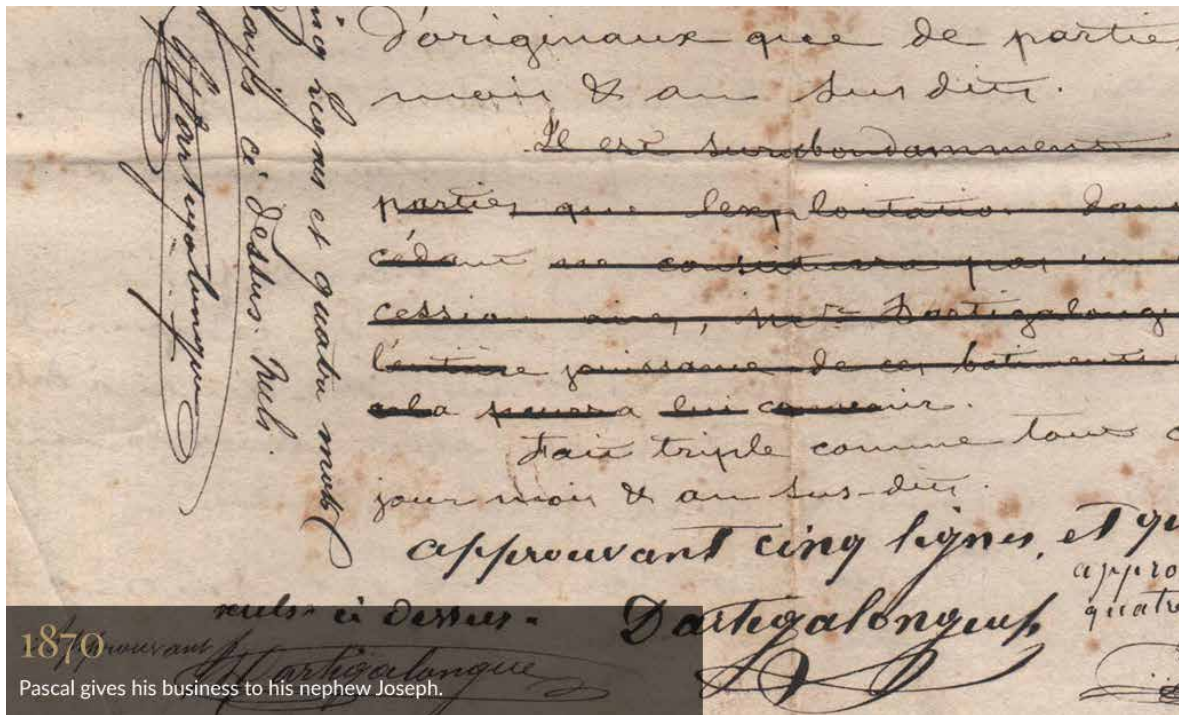 d'originaux que de parties
mois & an sus dits.
Il est surabondamment
parties que l'exploitation dans
cédant ne constituera pas un
cession ainsi, Mr Dartigalongue
l'entière jouissance de ces batiments
cela pourra lui convenir.
Fait triple comme
jour mois & an sus-dits.
approuvant cinq lignes, et qu
nuls ci dessus.
Dartigalongue
appro
quatre
approuvant
Dartigalongue
lignes et quatre mots
rayés ci dessus nuls
Dartigalongue
1870
Pascal gives his business to his nephew Joseph.